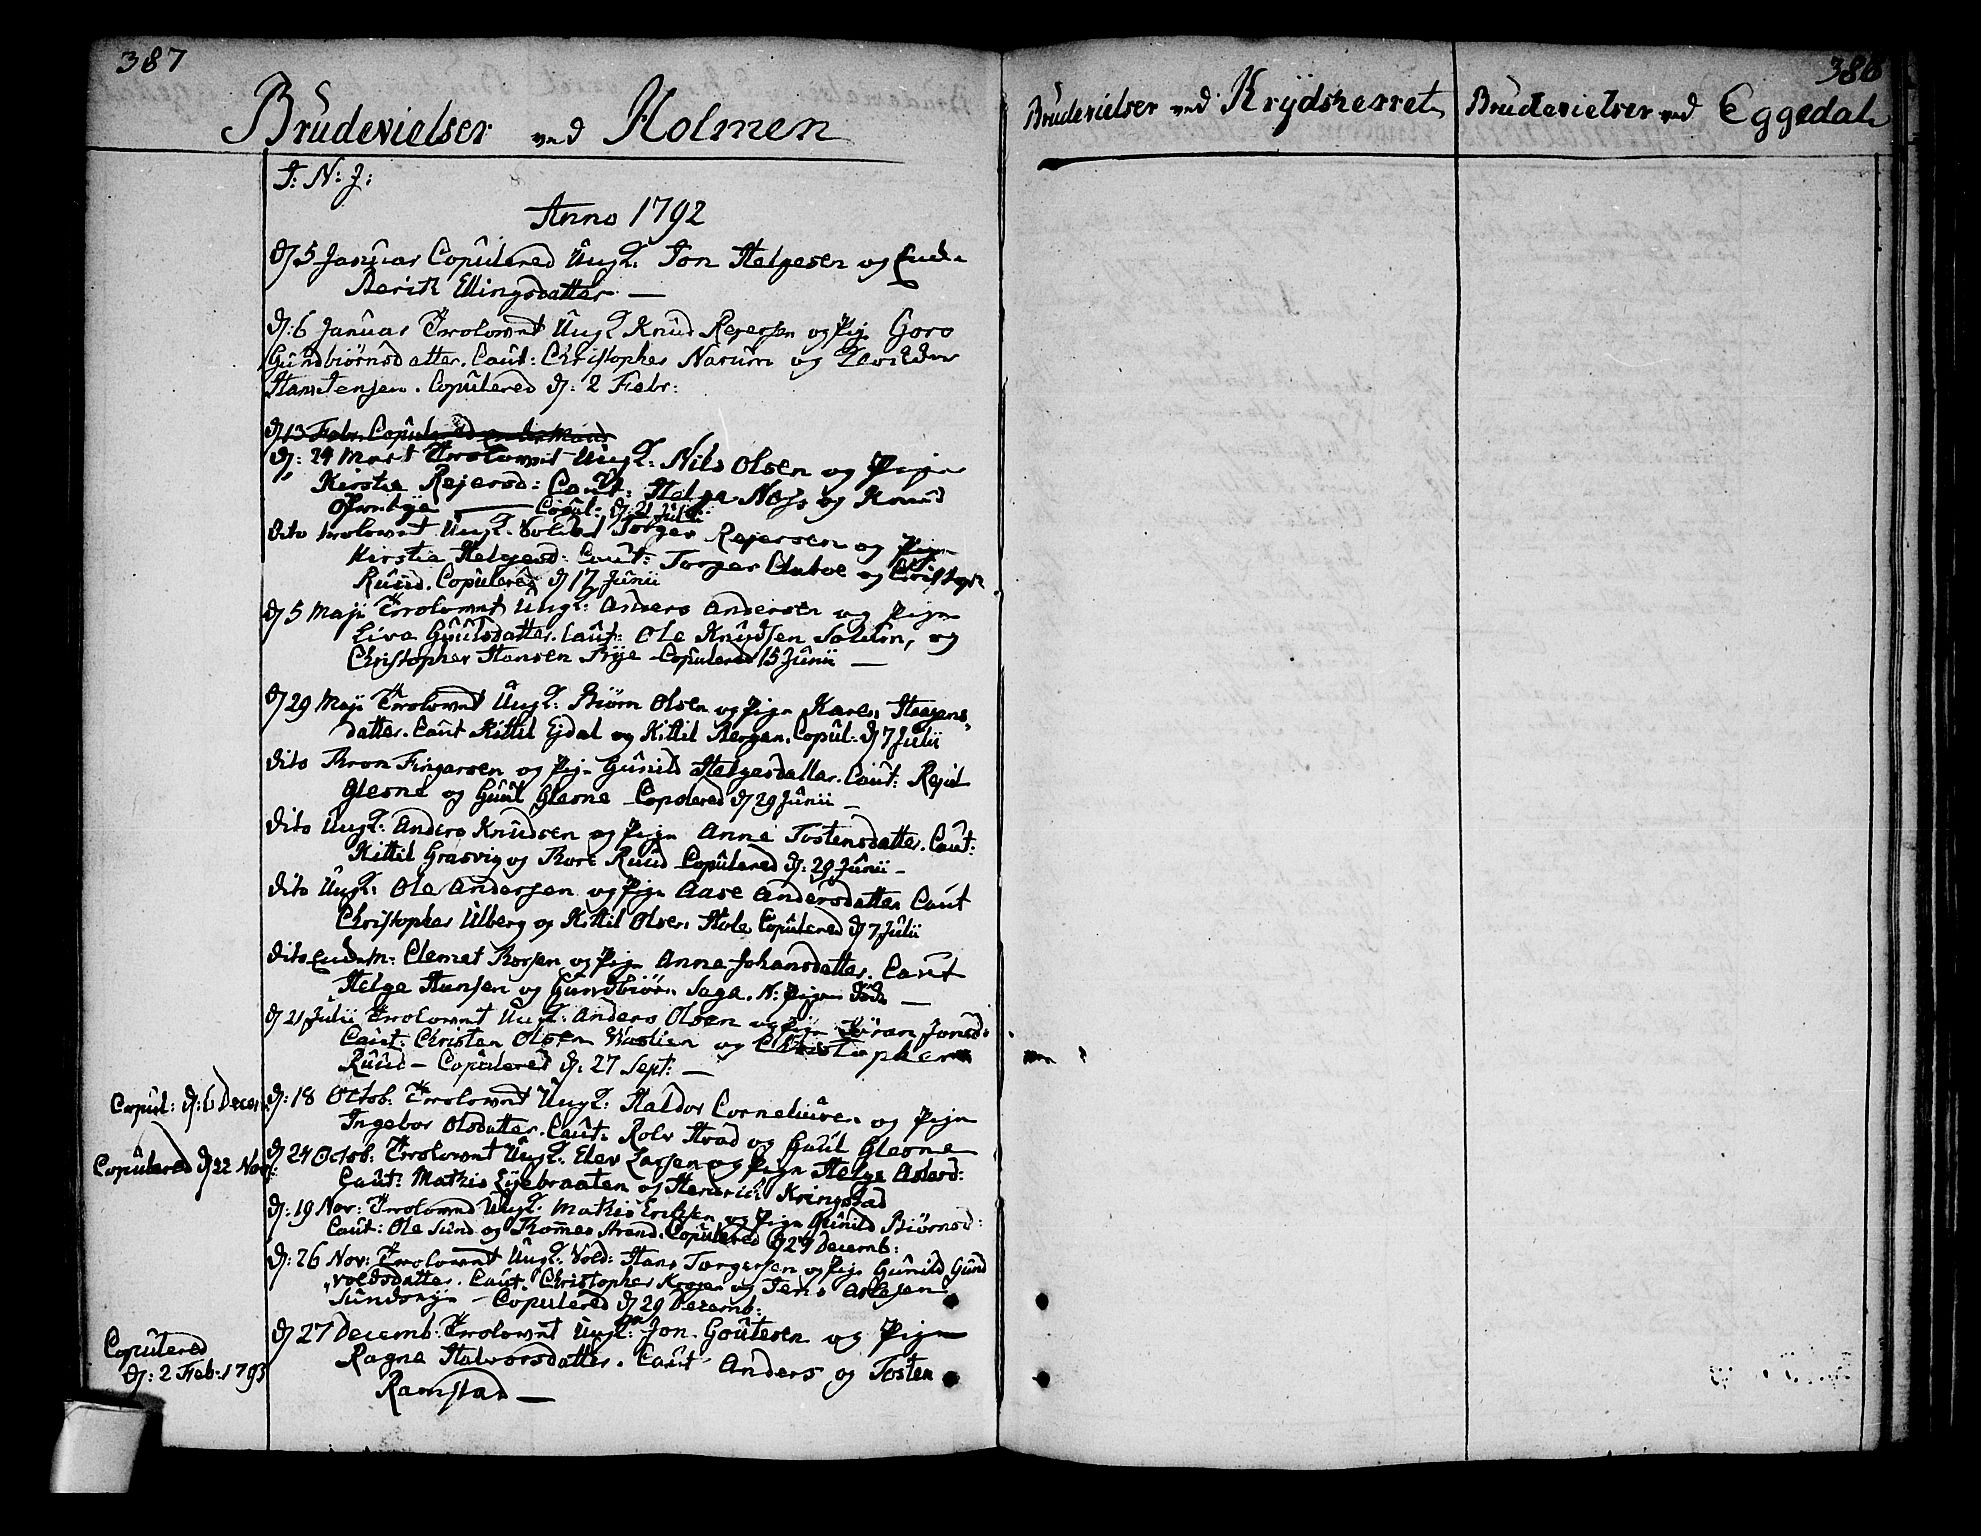 387
Brudevielser ved Holmen
I: N: J:
Anno 1792
d/ 5 Januar Copulered Ungk. Jon Helgesen og Enke
Berith Ellingsdatter —
d: 6 Januar Trolovet Ungk Knud Rejersen og Pig. Goro
Gundbiørnsdatter. Caut: Christopher Narum og
Hans Jensen. Copulered d: 2 Febr:
d/ 13 Febr. Copulered
d: 24 Mart Trolovet Ungk: Nils Olsen og Pigen
Kirstie Rejersd: Caut: Helge Næss og Knud
Copul: d: 21 Julii
dito trolovet Ungk. Torger Rejersen og Pigen
Kirstie Helgesd: Caut: Torger og
Ruud. Copulered d/ 17 Junii
d/ 5 Maji Trolovet Ungk: Anders Andersen og Pigen
Live Guulsdatter. Caut: Ole Knudsen og
Christopher Hansen Bye Copulered 15 Junii —
d/ 29 Maji Trolovet Ungk: Biørn Olsen og Pigen Karen Haagens-
datter. Caut Kittil Ejdal og Kittil Bergan. Copul: d/ 7 Julii
dito Thron Fingarsen og Pigen Gunild Helgesdatter. Caut:
Glesne og Guul Glesne Copulered d/ 29 Junii —
dito Ungk: Anders Knudsen og Pigen Anne Tostensdatter. Caut:
Kittil Grasvig og Thore Ruud Copulered d: 29 Junii —
dito Ungk: Ole Andersen og Pigen Aase Andersdatter Caut
Christopher Ulberg og Kittil Olsen Hole Copulered d/ 7 Julii
dito Enkem: Clemet Thorsen og Pigen Anne Johansdatter. Caut
Helge Hansen og Gundbiørn Saga. N: Pigen død —
d/ 21 Julii Trolovet Ungk: Anders Olsen og Pigen Jøran Jonsd:
Caut: Christen Olsen og Christopher
Ruud — Copulered d: 27 Sept: —
Copul: d: 6 Decem
d: 18 Octob. Trolovet Ungk: Haldor Corneliusen og Pigen
Ingebor Olsdatter. Caut: Rolv Hvad og Guul Glesne
Copulered d/ 22 Nov:
d/ 24 Octob: Trolovet Ungk. Elev Larsen og Pigen Helge Aslesd:
Caut: Mathis Lyebraaten og Hendrich Kringstad
d: 19 Nov: Trolovet Ungk. Mathis Eriksen og Pigen Gunild Biørnsd:
Caut: Ole Sund og Thommes Strand. Copulered d/ 29 Decemb:
d: 26 Nov: Trolovet Ungk. Sold: Hans Torgersen og Pige Gunild Gund
voldsdatter. Caut. Christopher og Jens Aslesen
Copulered d/ 29 Decemb:
Copulered
d: 2 Feb: 1793
d/ 27 Decemb: Trolovet Ungk: Jon Goutesen og Pigen
Ragne Halvorsdatter. Caut Anders og Tosten
Ramstad —
388
Brudevielser ved Krydsherret
Brudevielser ved Eggedal